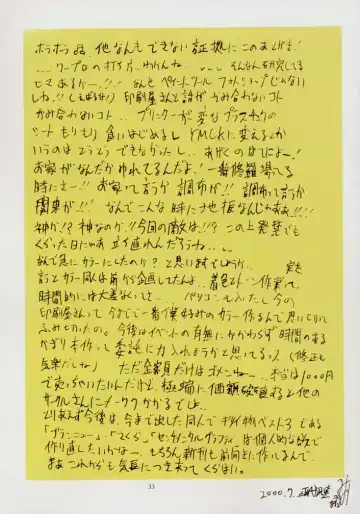 ホラホラ品 他なんもできない証拠にこのあとがき!
....ワープロの打ち方...わかんねー ... そんなん研究してる
ヒマあるかー!!! なんせペイントツール フォトショップじゃない
しね!! (しばらくなり) 印刷屋さんと話がかみ合わないコト
かみ合わないコト.. プリンターが変なプラスチックの
シート もりもり食いはじめるし YMCKに変えるとか
いうのは とうとう できなかったし.. あげくのはてによー!
お家がなんだかゆれてるんだよ! 一番修羅場ってる
時にさー!! お家って言うか 調布が!! 調布って言うか
関東が!! なんでこんな時に地震なんじゃああ!!!!
神か!? 神なのか!! 今回の敵は!!? この上発禁でも
くらった日にゃあ 立ち直れんだろうねー...
なんで急にカラーにしたのか? と思いますでしょうが、
計とカラー同人は前から企画してたんよ.. 着色とトーン作業って、
時間的には大差ないしさ... パソコンも入ったし今の
印刷屋さんって 今までで一番僕好みのカラー作るんで 思い切って
ふみきったの。 今後はイベントの有無にかかわらず時間のある
かぎり本作って 委託に力入れようかと思ってるっス (修正も
気楽だしね) ただ金額だけはゴメンねー ...本当は1000円
で売りたいたいんだけど、極端に価額破壊すると他の
サークルさんにメーワクかかるでしょ..
とりあえず今後は、今まで出した同人で ギワイ物ベスト3である
「ブランニュー」「さくら」「センチメンタルグラフティ」は個人的な欲で
作り直したいかなー もちろん新刊も前向きに作ってるんで、
まあこれからも気長につき合ってくらはい。
33
2000.7.